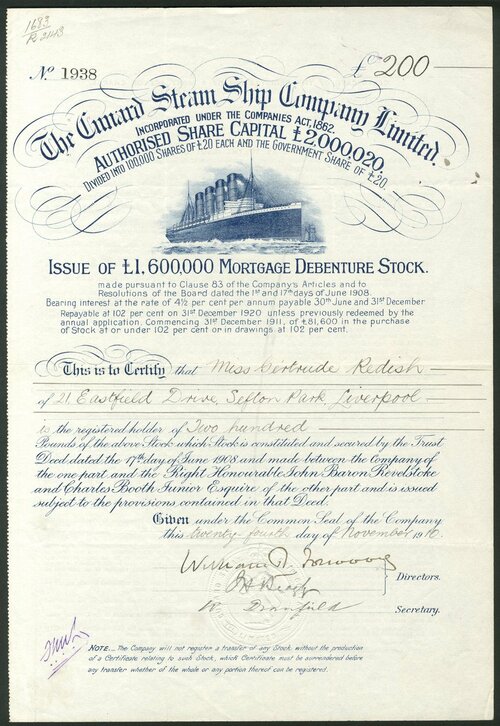 1683
R 2143
No. 1938
£200
The Cunard Steam Ship Company Limited.
INCORPORATED UNDER THE COMPANIES ACT, 1862.
AUTHORISED SHARE CAPITAL £2,000,020,
DIVIDED INTO 100,000 SHARES OF £20 EACH AND THE GOVERNMENT SHARE OF £20.
ISSUE OF £1,600,000 MORTGAGE DEBENTURE STOCK.
made pursuant to Clause 83 of the Company's Articles and to
Resolutions of the Board dated the 1st and 17th days of June 1908.
Bearing interest at the rate of 4½ per cent per annum payable 30th June and 31st December
Repayable at 102 per cent on 31st December 1920 unless previously redeemed by the
annual application, Commencing 31st December 1911, of £81,600 in the purchase
of Stock at or under 102 per cent or in drawings at 102 per cent.
This is to Certify that Miss Gertrude Redish
of 21 Eastfield Drive, Sefton Park, Liverpool
is the registered holder of Two hundred
Pounds of the above Stock which Stock is constituted and secured by the Trust
Deed dated the 17th day of June 1908 and made between the Company of
the one part and the Right Honourable John Baron Revelstoke
and Charles Booth Junior Esquire of the other part and is issued
subject to the provisions contained in that Deed.
Given under the Common Seal of the Company
this twenty fourth day of November 1910.
Directors.
Secretary.
NOTE.... The Company will not register a transfer of any Stock without the production
of a Certificate relating to such Stock, which Certificate must be surrendered before
any transfer whether of the whole or any portion thereof can be registered.